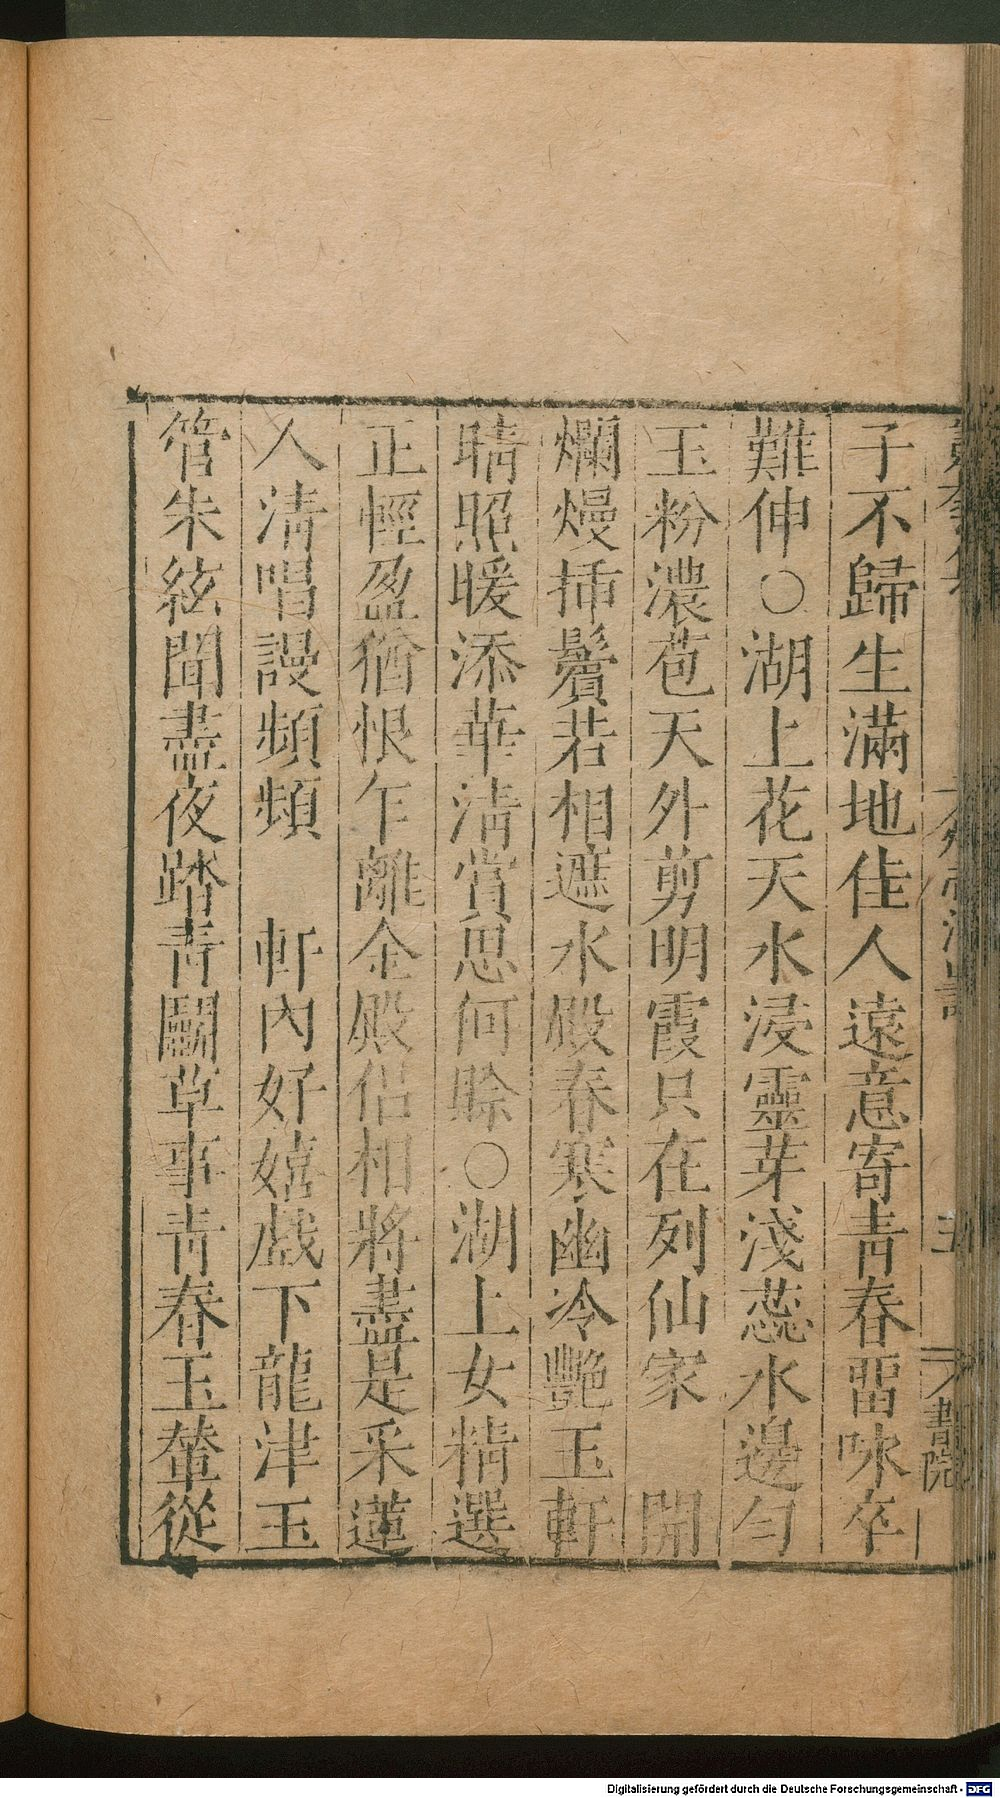 子不歸生滿地佳人遠意寄青春畱咏卒
難伸○湖上花天水浸靈芽淺蕊水邊勻
玉粉濃苞天外剪明霞只在列仙家　開
爛熳揷鬢若相遮水殿春寒幽冷艷玉軒
晴照暖添華清賞思何賖○湖上女精選
正輕盈猶恨乍離金殿侣相將盡是采蓮
人清唱謾頻頻　軒內好嬉戲下龍津玉
管朱絃聞盡夜踏青鬭草事青春玉輦從
書院
Digitalisierung gefördert durch die Deutsche Forschungsgemeinschaft - DFG